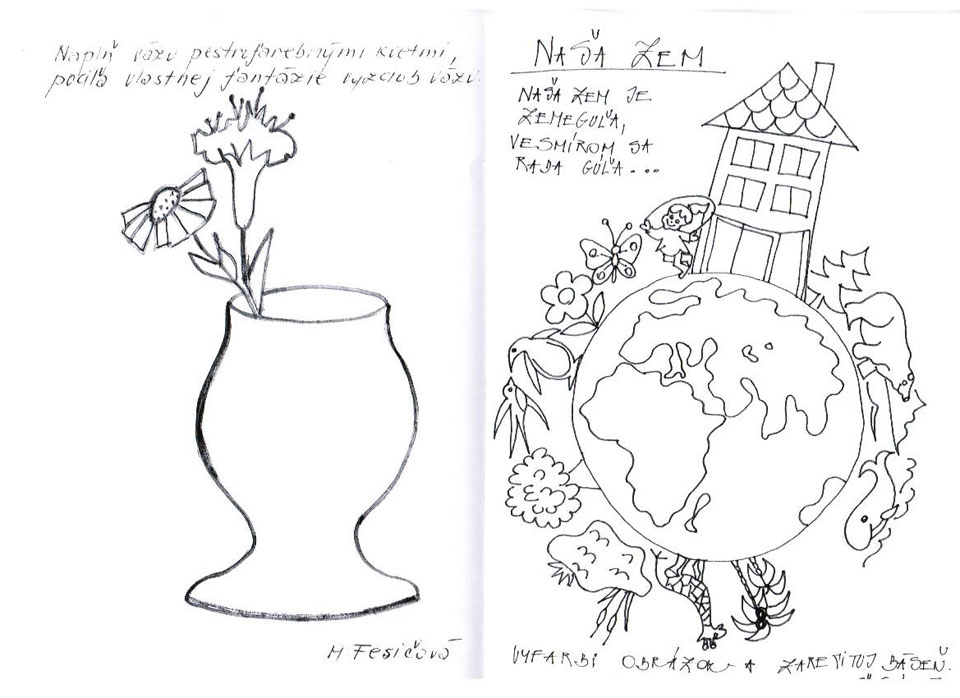 Naplň vázu pestrofarebnými kvetmi,
podľa vlastnej fantázie vyzdob vázu.
M Fesičová
NAŠA ZEM
NAŠA ZEM JE
ZEMEGUĽA,
VESMÍROM SA
RADA GÚĽA...
VYFARBI OBRÁZOK A ZAREVITUJ BÁSEŇ.